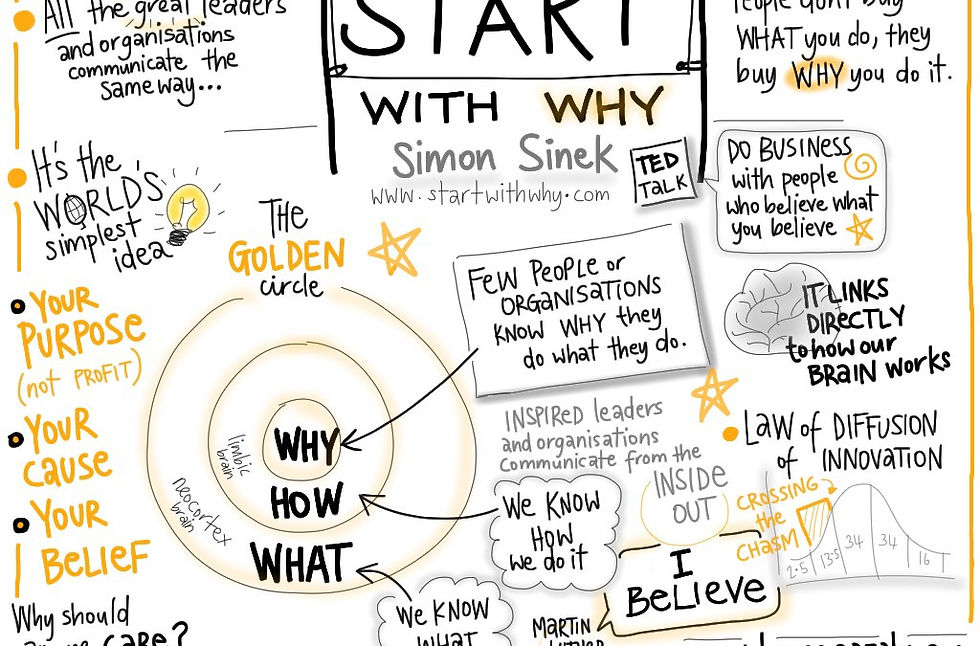 All the great leaders
and organisations
communicate the
same way...
START
WITH WHY
Simon Sinek
www.startwithwhy.com
TED
TALK
People don't buy
WHAT you do, they
buy WHY you do it.
DO BUSINESS
with people
who believe what
you believe
It's the
WORLD'S
simplest
idea
THE
GOLDEN
circle
FEW PEOPLE or
ORGANISATIONS
KNOW WHY they
do what they do.
IT LINKS
DIRECTLY
to how our
BRAIN WORKS
YOUR
PURPOSE
(not PROFIT)
YOUR
CAUSE
YOUR
BELIEF
WHY
limbic
brain
HOW
neocortex
brain
WHAT
INSPIRED leaders
and organisations
communicate from the
INSIDE
OUT
We KNOW
HOW
we do it
We KNOW
WHAT
I
BELIEVE
MARTIN
LUTHER
LAW of DIFFUSION
of INNOVATION
CROSSING
the
CHASM
2.5 13.5 34 34 16
Why should
CARE?